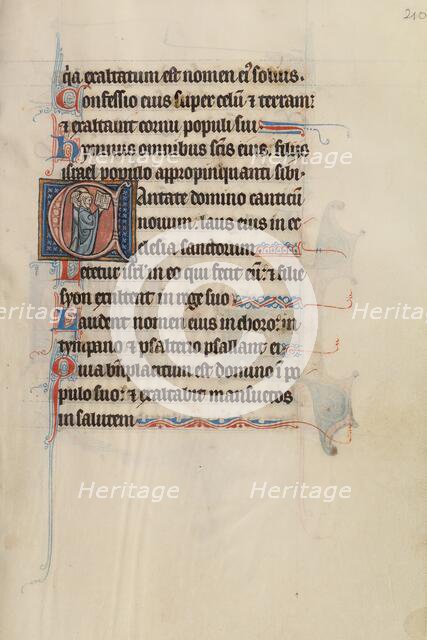 210
q̇a exaltatum est nomen ei᷒ solius.
Confessio eius super celū & terram:
& exaltauit cornu populi sui.
Hymnus omnibus sc̄is eius. filiis
israel populo appropinquanti sibi.
Cantate domino canticū
nouum. laus eius in ec
clesia sanctorum
Letetur isrl̄ in eo qui fecit eū: & filie
syon exultent in rege suo
Laudent nomen eius in choro: in
tympano & psalterio psallant ei
Quia bn̄placitum est domino ī po
pulo suo: & exaltabit mansuetos
in salutem
Heritage Heritage
Heritage Heritage Heritage
Heritage Heritage